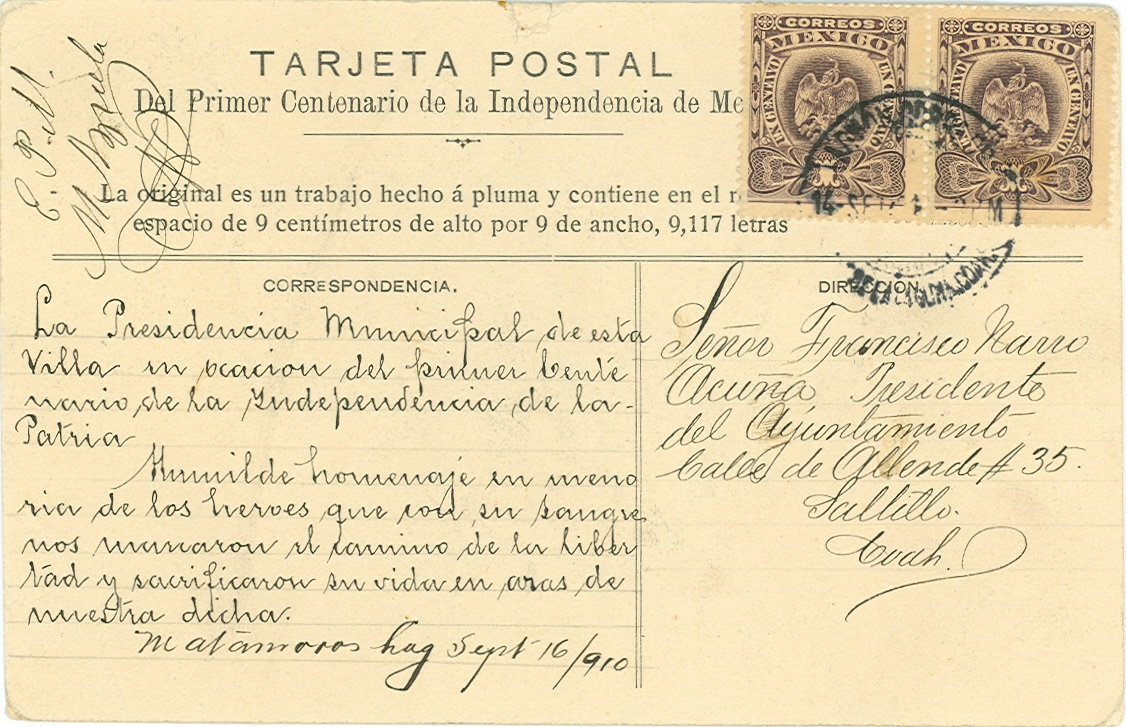 TARJETA POSTAL
Del Primer Centenario de la Independencia de Me
La original es un trabajo hecho á pluma y contiene en el r
espacio de 9 centímetros de alto por 9 de ancho, 9,117 letras
CORREOS
MEXICO
UN CENTAVO
UN CENTAVO
CORREOS
MEXICO
UN CENTAVO
UN CENTAVO
14-SET
M
DE LA LAGUNA, COAH
E. P. M.
M
CORRESPONDENCIA.
La Presidencia Municipal de esta
Villa en ocacion del primer Cente
nario de la Independencia de la-
Patria
Humilde homenaje en memo
ria de los heroes que con su sangre
nos marcaron el camino de la liber
tad y sacrificaron su vida en aras de
nuestra dicha.
Matamoros Lag Sept 16/910
DIRECCIÓN.
Señor Francisco Narro
Acuña Presidente
del Ayuntamiento
Calle de Allende # 35.
Saltillo.
Coah.